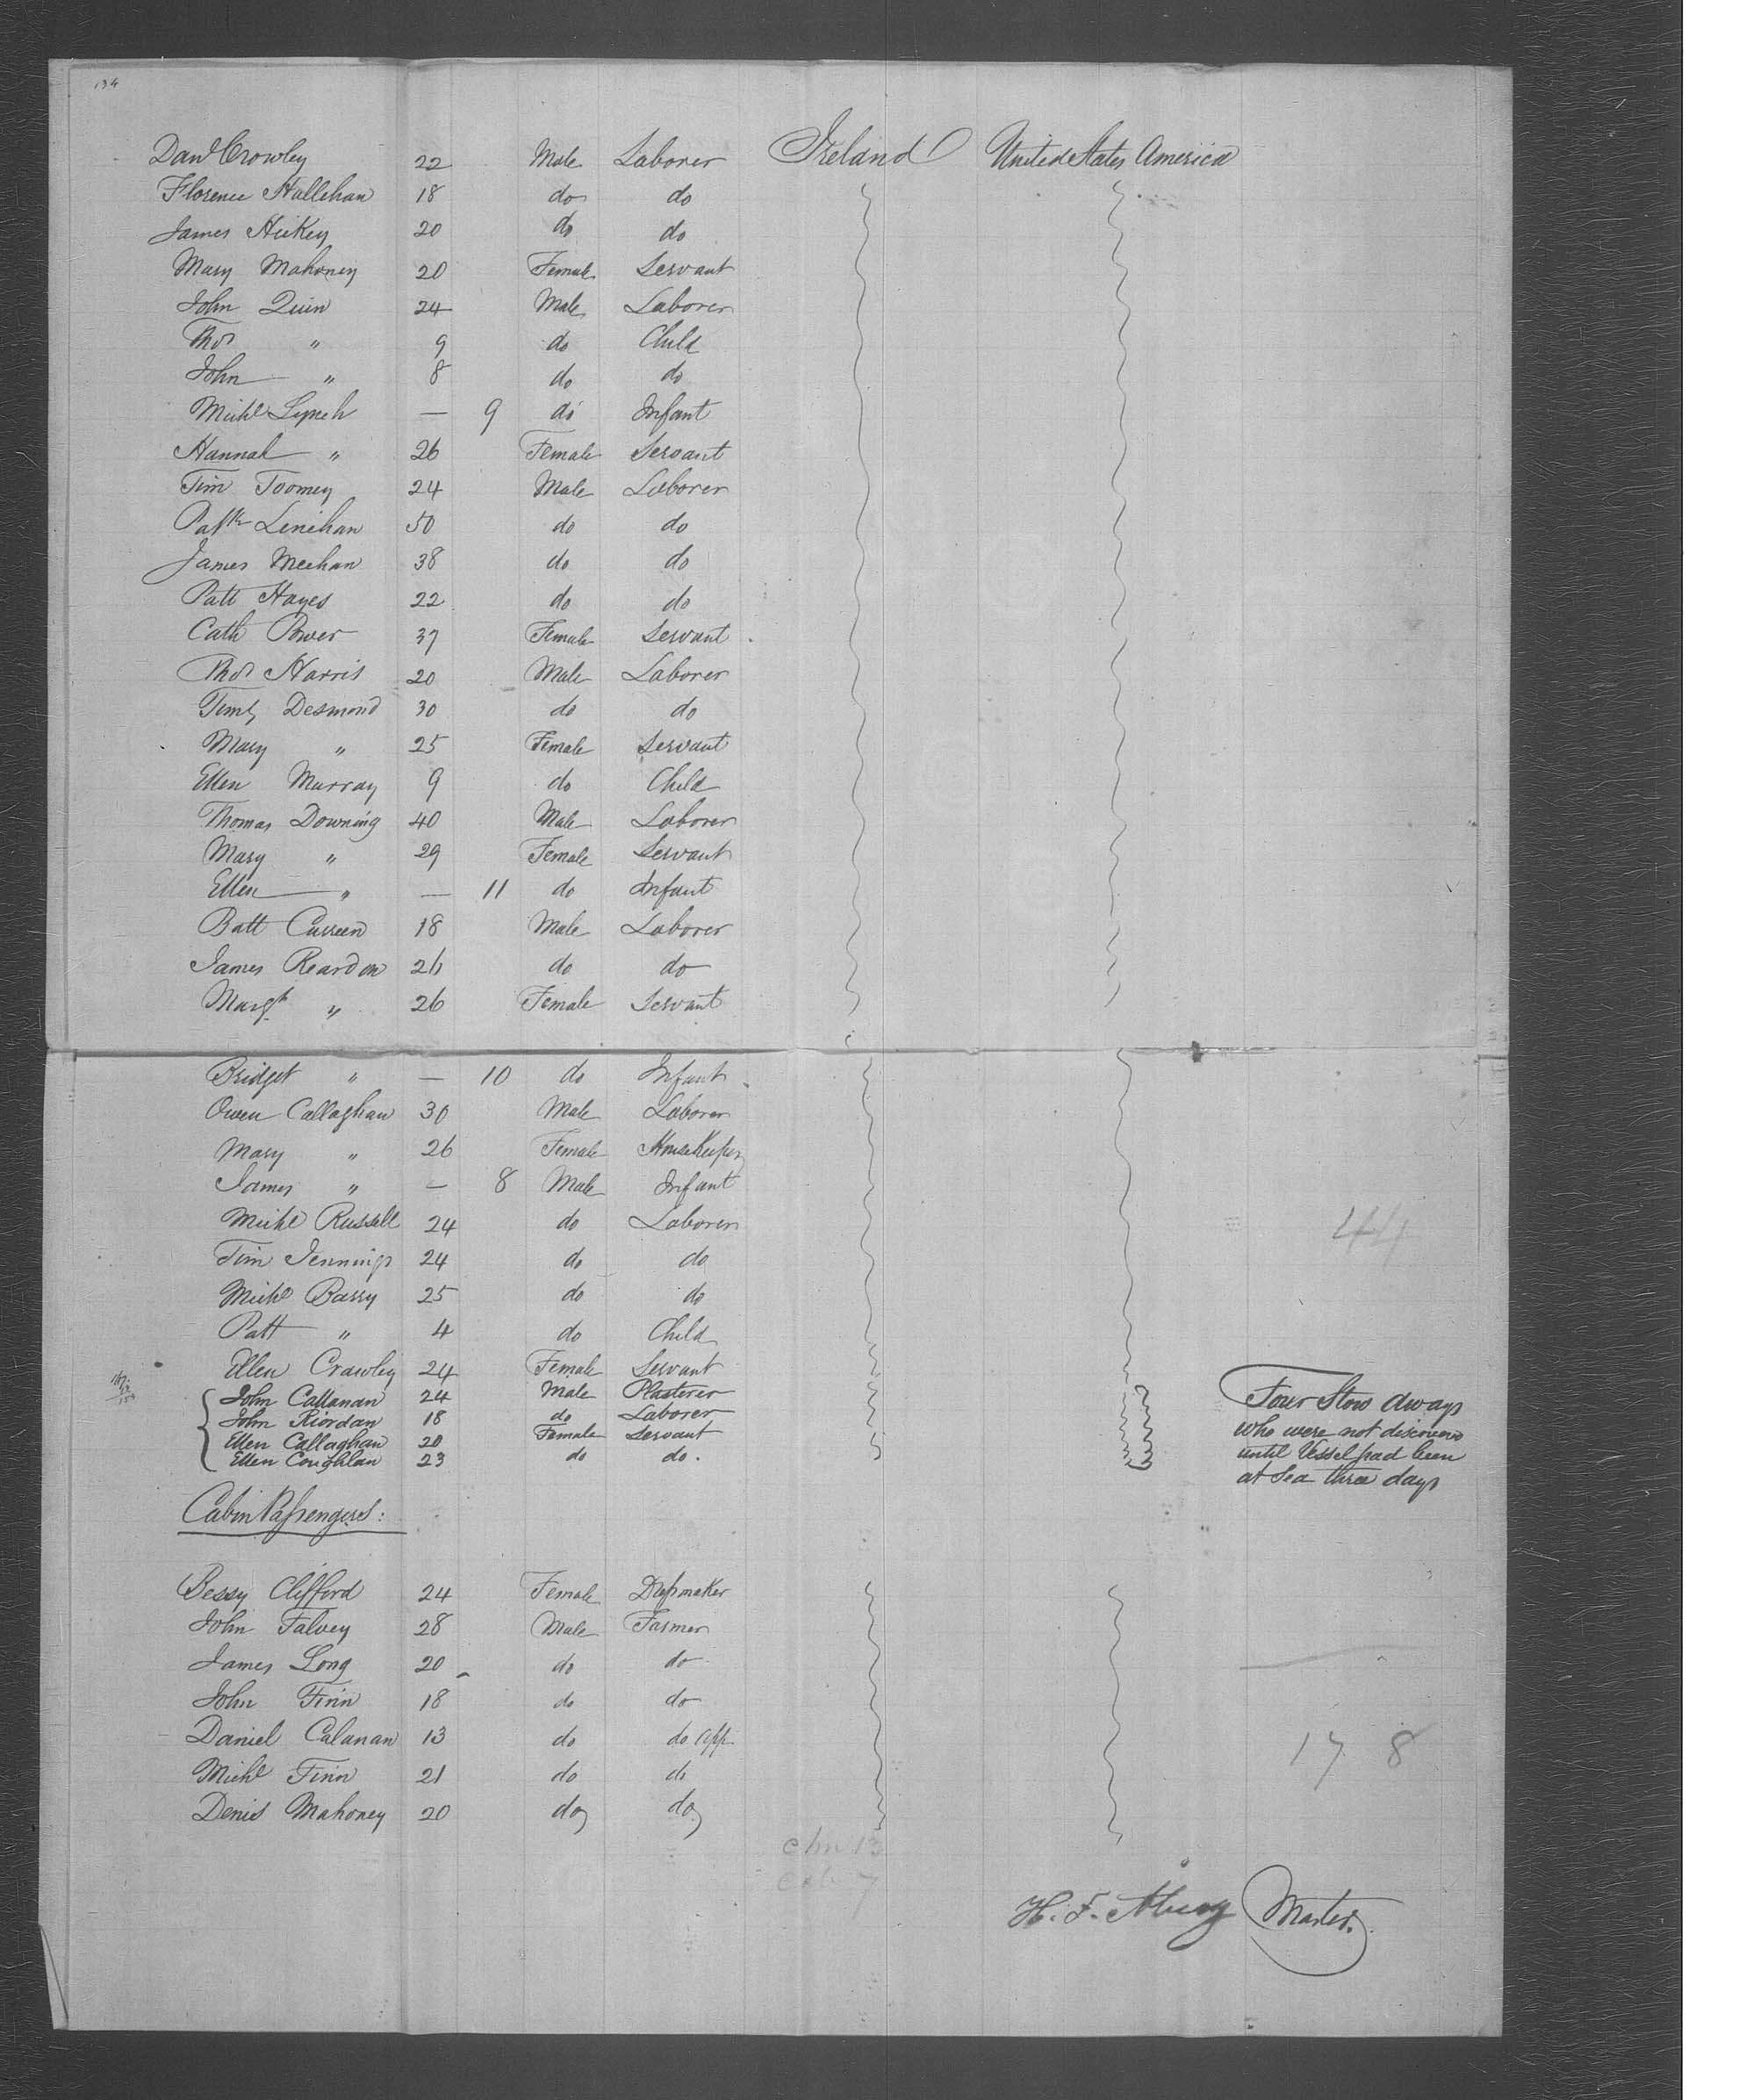 134
Danl Crowley 22 Male Laborer Ireland United States America
Florence Hallehan 18 do do
James Hickey 20 do do
Mary Mahoney 20 Female Servant
John Quin 24 Male Laborer
Thos " 9 do Child
John " 8 do do
Michl Lynch — 9 do Infant
Hannah " 26 Female Servant
Tim Toomey 24 Male Laborer
Patk Linehan 50 do do
James Meehan 38 do do
Patt Hayes 22 do do
Cath Power 37 Female Servant
Thos Harris 20 Male Laborer
Timy Desmond 30 do do
Mary " 25 Female Servant
Ellen Murray 9 do Child
Thomas Downing 40 Male Laborer
Mary " 29 Female Servant
Ellen " — 11 do Infant
Batt Curreen 18 Male Laborer
James Reardon 26 do do
Margt " 26 Female Servant
Bridget " — 10 do Infant
Owen Callaghan 30 Male Laborer
Mary " 26 Female Housekeeper
James " — 8 Male Infant
Michl Russell 24 do Laborer
44
Tim Jennings 24 do do
Michl Barry 25 do do
Patt " 4 do Child
Ellen Crawley 24 Female Servant
John Callanan 24 Male Plasterer Four Stow aways
John Riordan 18 do Laborer who were not discovered
Ellen Callaghan 20 Female Servant until Vessel had been
Ellen Coughlan 23 do do. at Sea three days
Cabin Passengers:
Bessy Clifford 24 Female Dressmaker
John Falvey 28 Male Farmer
James Long 20 do do
John Finn 18 do do
Daniel Calanan 13 do do app
178
Michl Finn 21 do do
Denis Mahoney 20 do do
chn 13
cab 7
H. F. Master.